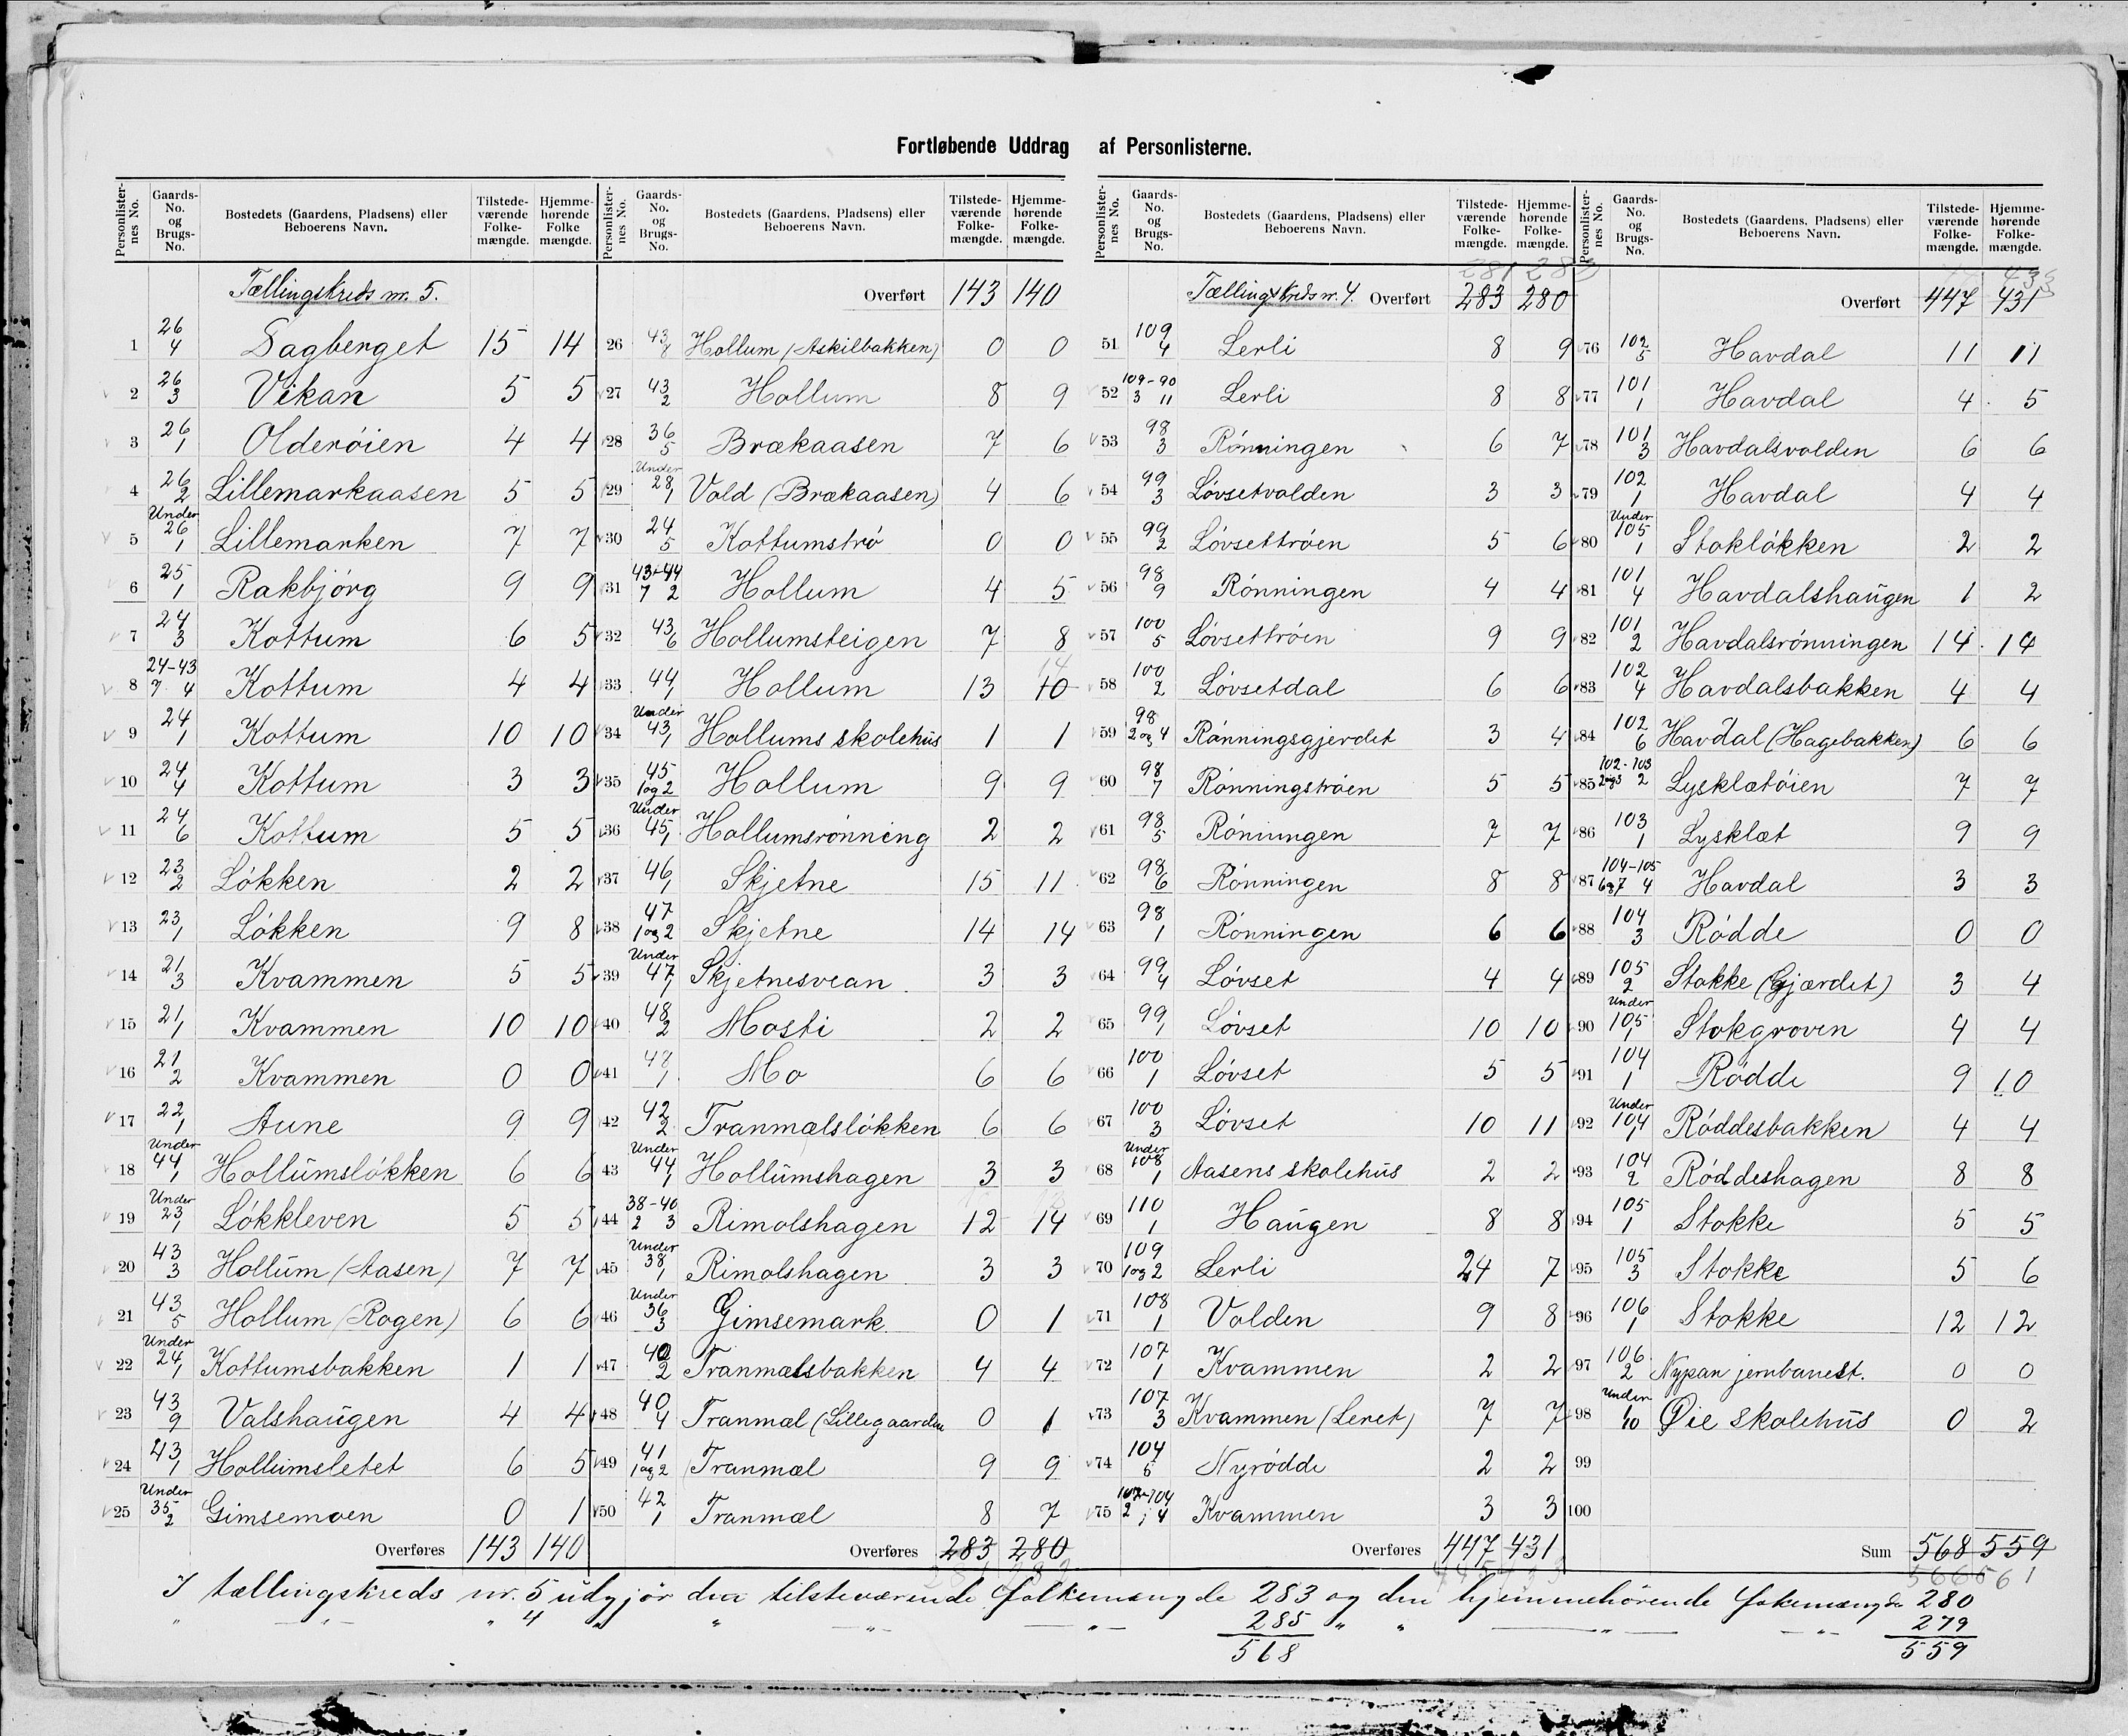 Fortløbende Uddrag af Personlisterne.
Personlisternes No. | Gaards-No. og Brugs-No. | Bostedets (Gaardens, Pladsens) eller Beboerens Navn. | Tilstedeværende Folkemængde. | Hjemmehørende Folkemængde.
Tællingskreds nr. 5.
1 26/4 Dagberget 15 14
2 26/3 Vikan 5 5
3 26/1 Olderøien 4 4
4 26/2 Lillemarkaasen 5 5
5 Under 26/1 Lillemarken 7 7
6 25/1 Rakbjørg 9 9
7 24/3 Kottum 6 5
8 24-43 7 4 Kottum 4 4
9 24/1 Kottum 10 10
10 24/4 Kottum 3 3
11 24/6 Kottum 5 5
12 23/2 Løkken 2 2
13 23/1 Løkken 9 8
14 21/3 Kvammen 5 5
15 21/1 Kvammen 10 10
16 21/2 Kvammen 0 0
17 22/1 Aune 9 9
18 Under 44/1 Hollumsløkken 6 6
19 Under 23/1 Løkkleven 5 5
20 43/3 Hollum (Aasen) 7 7
21 43/5 Hollum (Rogen) 6 6
22 Under 24/1 Kottumsbakken 1 1
23 43/9 Valshaugen 4 4
24 43/1 Hollumsletet 6 5
25 Under 35/2 Gimsemoen 0 1
Overføres 143 140
Overført 143 140
26 43/8 Hollum (Askilbakken) 0 0
27 43/2 Hollum 8 9
28 36/5 Brækaasen 7 6
29 Under 28/1 Vold (Brækaasen) 4 6
30 24/5 Kottumstrø 0 0
31 43-44 7 2 Hollum 4 5
32 43/6 Hollumsteigen 7 8
33 44/1 Hollum 13 10 14
34 Under 43/1 Hollums skolehus 1 1
35 45 1 og 2 Hollum 9 9
36 Under 45/1 Hollumsrønning 2 2
37 46/1 Skjetne 15 11
38 47 1 og 2 Skjetne 14 14
39 Under 47/1 Skjetnesvean 3 3
40 48/2 Mosti 2 2
41 48/1 Mo 6 6
42 42/2 Tranmælsløkken 6 6
43 Under 44/1 Hollumshagen 3 3
44 38-40 2 3 Rimolshagen 12 14
45 Under 38/1 Rimolshagen 3 3
46 Under 36/3 Gimsemark 0 1
47 40/2 Tranmælsbakken 4 4
48 40/4 Tranmæl (Lillegaarden 0 1
49 41 1 og 2 Tranmæl 9 9
50 42/1 Tranmæl 8 7
Overføres 283 280
Tællingskreds nr. 4. Overført 283 280
281 283
51 109/4 Lerli 8 9
52 109-90 3 11 Lerli 8 8
53 98/3 Rønningen 6 7
54 99/3 Løvsetvolden 3 3
55 99/2 Løvsettrøen 5 6
56 98/9 Rønningen 4 4
57 100/5 Løvsettrøen 9 9
58 100/2 Løvsetdal 6 6
59 98 2 og 4 Rønningsgjerdet 3 4
60 98/7 Rønningstrøen 5 5
61 98/5 Rønningen 7 7
62 98/6 Rønningen 8 8
63 98/1 Rønningen 6 6
64 99/4 Løvset 4 4
65 99/1 Løvset 10 10
66 100/1 Løvset 5 5
67 100/3 Løvset 10 11
68 Under 108/1 Aasens skolehus 2 2
69 110/1 Haugen 8 8
70 109 1 og 2 Lerli 24 7
71 108/1 Volden 9 8
72 107/1 Kvammen 2 2
73 107/3 Kvammen (Leret) 7 7
74 104/5 Nyrødde 2 2
75 107-104 2 4 Kvammen 3 3
Overføres 447 431
Overført 447 431
433
76 102/5 Havdal 11 11
77 101/1 Havdal 4 5
78 101/3 Havdalsvolden 6 6
79 102/1 Havdal 4 4
80 Under 105/1 Stokløkken 2 2
81 101/4 Havdalshaugen 1 2
82 101/2 Havdalsrønningen 14 14
83 102/4 Havdalsbakken 4 4
84 102/6 Havdal (Hagebakken) 6 6
85 102-103 2 og 3 2 Lysklætøien 7 7
86 103/1 Lysklæt 9 9
87 104-105 6 og 7 4 Havdal 3 3
88 104/3 Rødde 0 0
89 105/2 Stokke (Gjærdet) 3 4
90 Under 105/1 Stokgroven 4 4
91 104/1 Rødde 9 10
92 Under 104/1 Røddesbakken 4 4
93 104/2 Røddeshagen 8 8
94 105/1 Stokke 5 5
95 105/3 Stokke 5 6
96 106/1 Stokke 12 12
97 106/2 Nypan jernbanest. 0 0
98 Under 1/10 Øie skolehus 0 2
99
100
Sum 568 559
566 561
I tællingskreds nr. 5 udgjør den tilsteværende folkemængde 283 og den hjemmehørende fokemængde 280
" " " 4 " " " " 285 " " " " 279
568 559